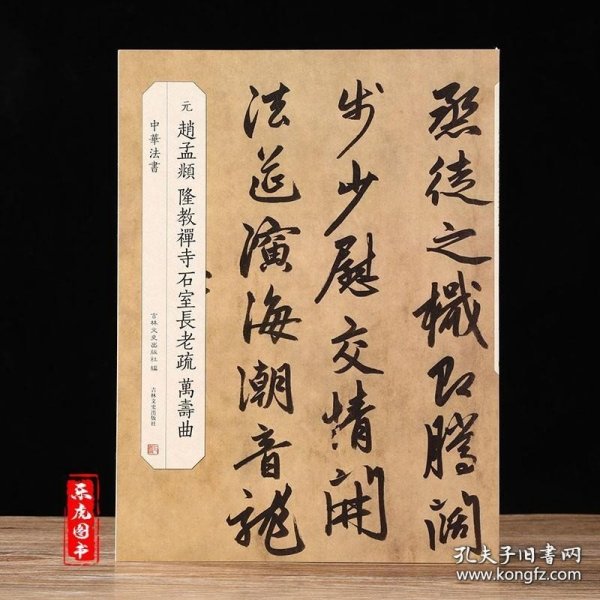 烝徒之檝即騰闊
步少慰交情開
法莚演海潮音龍
元 趙孟頫 隆教禪寺石室長老疏 萬壽曲
中華法書
吉林文史出版社 編
吉林文史出版社
乐虎图书
孔夫子旧书网
www.kongfz.com